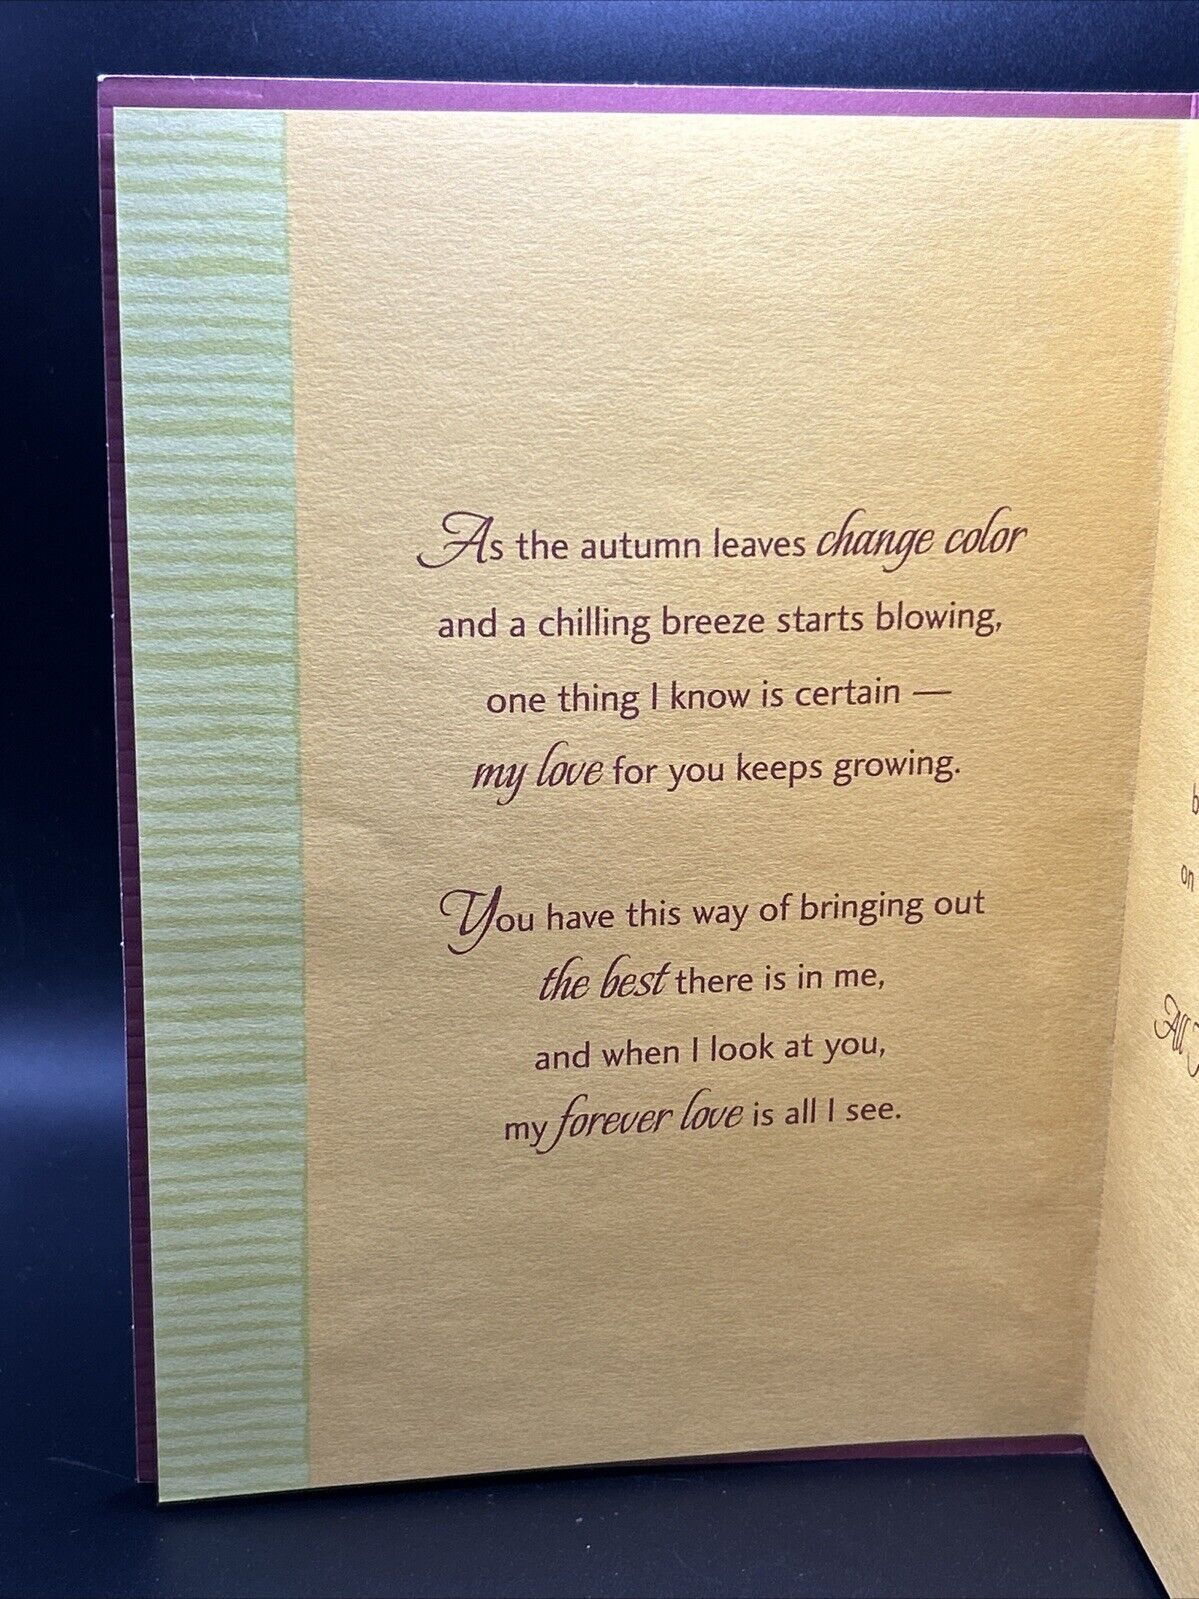 As the autumn leaves change color
and a chilling breeze starts blowing,
one thing I know is certain —
my love for you keeps growing.
You have this way of bringing out
the best there is in me,
and when I look at you,
my forever love is all I see.
on
All